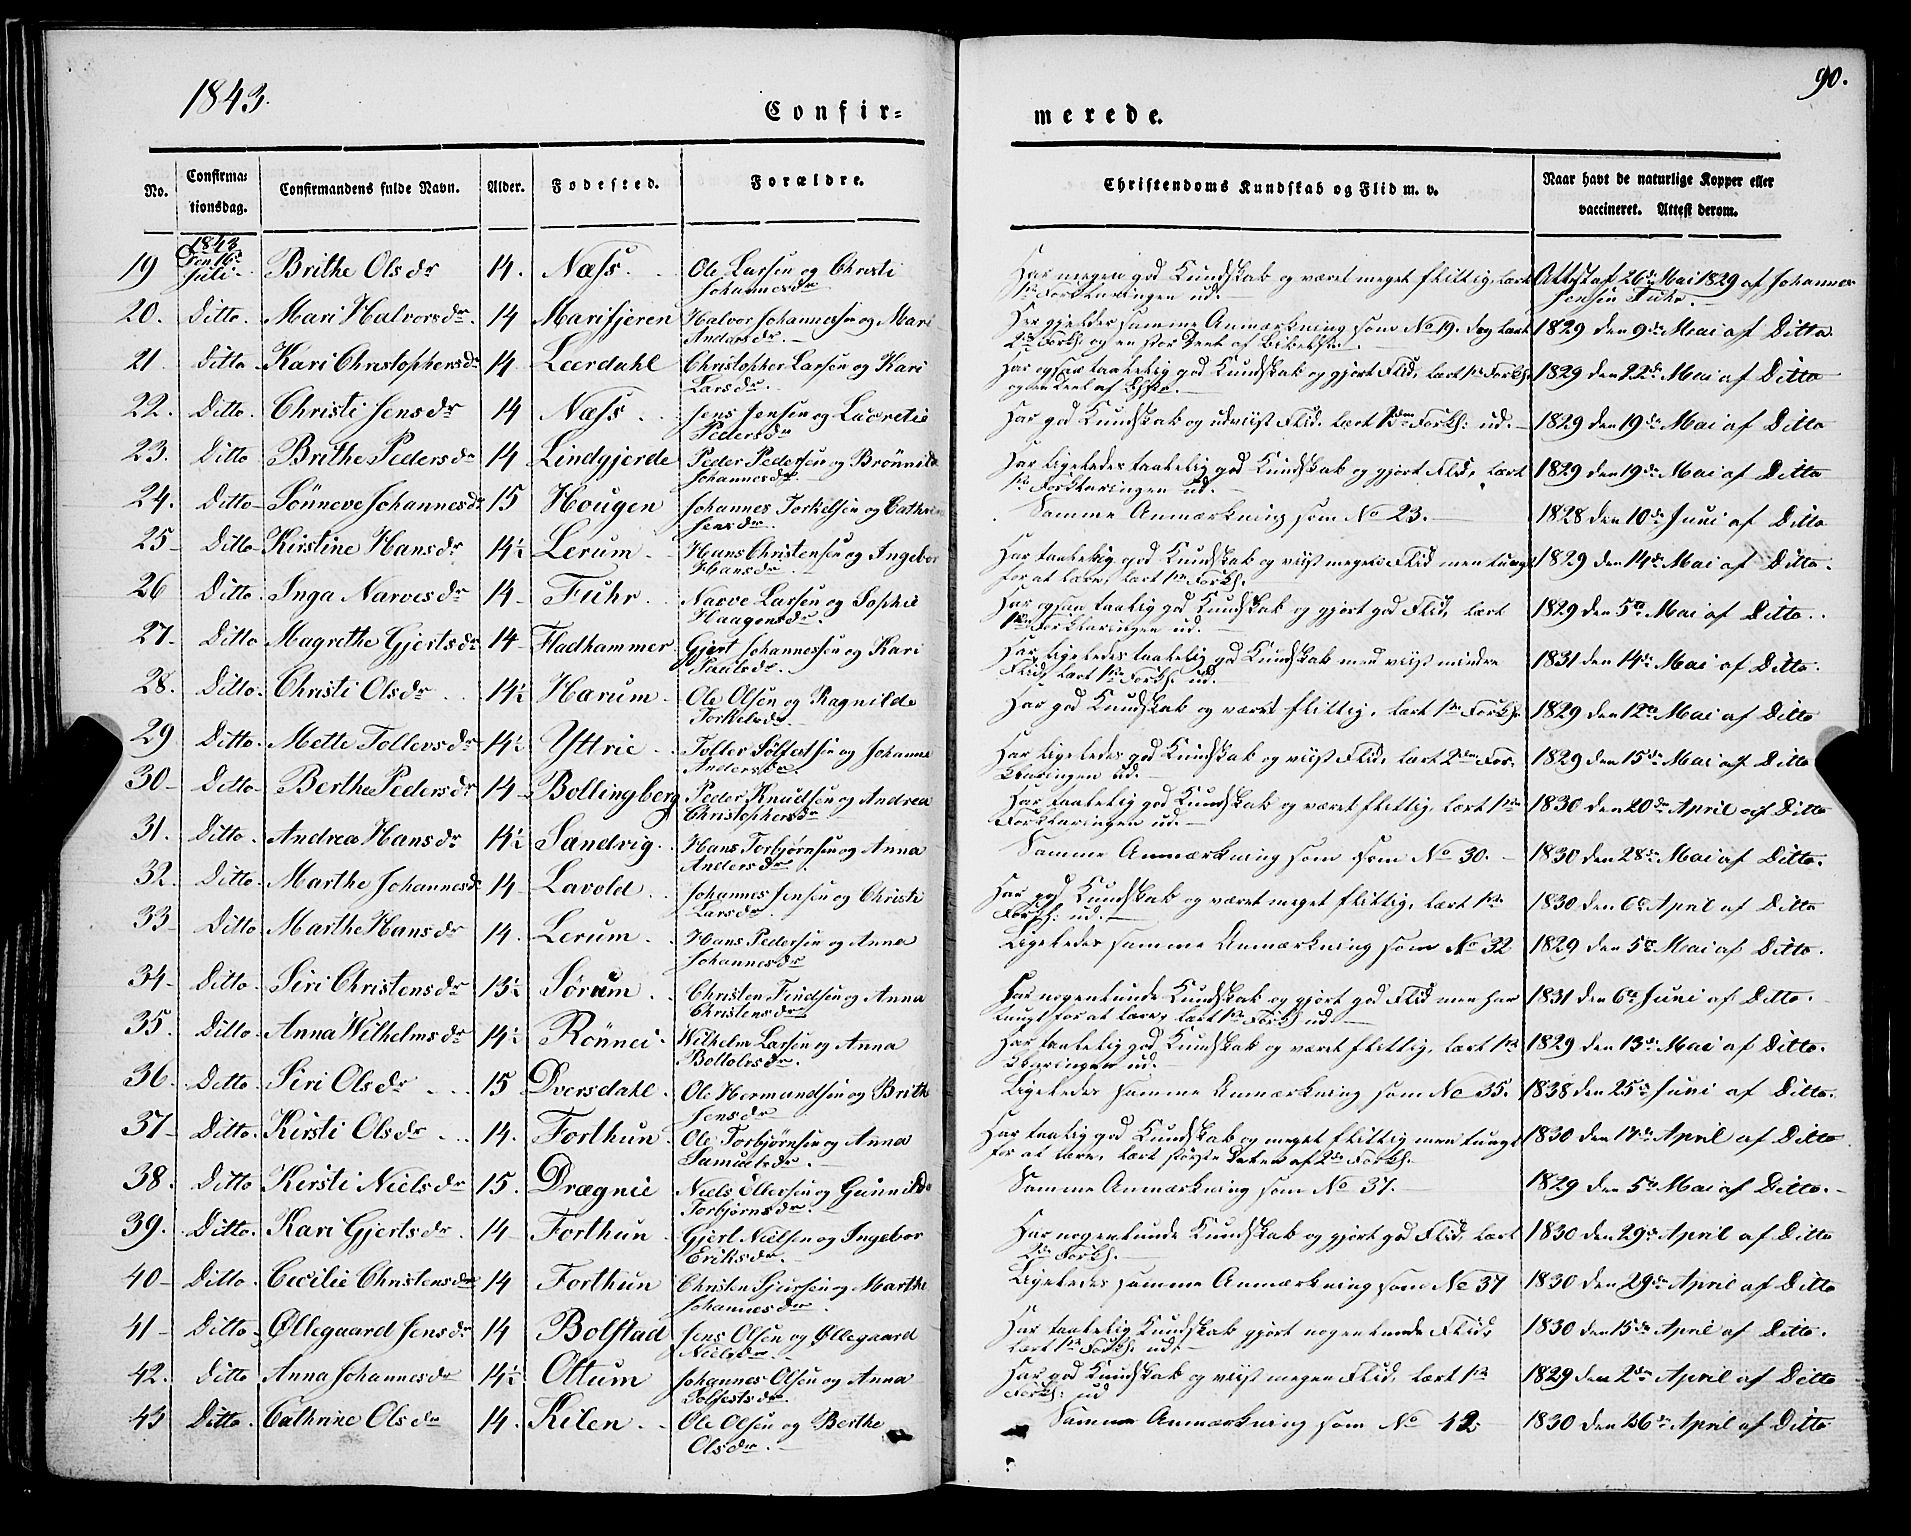 1843.
90.
Confir=
merede.
No.
Confirma=
tionsdag.
Confirmandens fulde Navn.
Alder.
Fødested.
Forældre.
Christendoms Kundskab og Flid m. v.
Naar havt de naturlige Kopper eller
vaccineret. Attest derom.
1843
Den 16de
19 Juli Brithe Olsdr 14. Næss. Ole Larsen og Christi
Johannesdr
Har megen god Kundskab og været meget flittig, lært Attest af 26de Mai 1829 af Johannes
1ste Forklaringen ud. Jensen Fuhr.
20. Ditto. Mari Halvorsdr. 14 Marifjeren Halvor Johannesen og Mari
Andersdr.
Her gjelder samme Anmærkning som No 19. dog lært 1829 den 9de Mai af Ditto.
2den Forkl. og en stor Deel af Bibelhist.
21. Ditto Kari Christophersdr 14 Leerdahl Christopher Larsen og Kari
Larsdr.
Har ogsaa taalelig god Kundskab og gjort Flid, lært 1ste Forkl. 1829 den 22de Mai af Ditto
og en Deel af
22. Ditto. Christi Jensdr 14 Næss. Jens Jensen og Lucretie
Pedersdr
Har god Kundskab og udviist Flid. lært Forkl: ud. 1829 den 19de Mai af Ditto
23. Ditto Brithe Pedersdr 14 Lindgjerde Peder Pedersen og Brönnild
Johannesdr.
Har ligeledes taalelig god Kundskab og gjort Flid, lært 1829 den 19de Mai af Ditto
1ste Forklaringen ud.
24. Ditto Sönneve Johannesdr 15 Hougen Johannes Torkelsen og Cathrine
Jensdr
Samme Anmærkning som No 23. 1828 den 10de Juni af Ditto
25 Ditto Kirstine Hansdr 14½ Lerum Hans Christensen og Ingebor
Hansdr.
Har taalelig god Kundskab og viist megen Flid men tungt 1829 den 14de Mai af Ditto.
for at lære, lært 1ste Forkl.
26 Ditto. Inga Narvesdr 14 Fuhr. Narve Larsen og Sophie
Haagensdr.
Har ogsaa taalig god Kundskab og gjort god Flid, lært 1829 den 5te Mai af Ditto.
1ste Forklaringen ud.
27. Ditto Magrethe Gjertsdr 14 Fladhammer Gjert Johannessen og Kari
Paulsdr.
Har ligeledes taalelig god Kundskab med viist mindre 1831 den 14de Mai af Ditto.
Flid, lært 1ste Forkl. ud.
28. Ditto. Christi Olsdr 14½ Harum Ole Olsen og Ragnilde
Torkelsdr.
Har god Kundskab og været flittig, lært 1ste Forkl. 1829 den 12te Mai af Ditto
29 Ditto. Mette Tollevsdr 14½ Yttrie Tollev Sölfestsen og Johanne
Andersdr.
Har ligeledes god Kundskab og viist Flid, lært 2den For= 1829 den 15de Mai af Ditto
klaringen ud.
30 Ditto Berthe Pedersdr 14 Bollingberg Peder Knudsen og Andrea
Christophersdr
Har taalelig god Kundskab og været flittig, lært 1ste 1830 den 20de April af Ditto
Forklaringen ud.
31. Ditto. Andrea Hansdr 14½ Sandvig. Hans Torbjørnsen og Anna
Andersdr.
Samme Anmærkning som som No 30. 1830 den 28de Mai af Ditto.
32. Ditto. Marthe Johannesdr 14 Lavold Johannes Jensen og Christi
Larsdr.
Har god Kundskab og været meget flittig, lært 1ste 1830 den 6te April af Ditto
Forkl: ud.
33 Ditto Marthe Hansdr 14. Lerum. Hans Pedersen og Anna
Johannesdr
Ligeledes samme Anmærkning som No 32 1829 den 5te Mai af Ditto.
34 Ditto. Siri Christensdr 13½ Sørum. Christen Findsen og Anna
Christensdr
Har nogenlunde Kundskab og gjort god Flid men har 1831 den 6te Juni af Ditto.
tungt for at lære, lært 1ste Forkl ud
35. Ditto. Anna Wilhelmsdr 14½ Rönnei. Wilhelm Larsen og Anna
Bottolvsdr.
Har taalelig god Kundskab og været flittig, lært 1ste 1829 den 13de Mai af Ditto.
klaringen ud.
36. Ditto. Siri Olsdr 15 Dversdahl. Ole Hermandsen og Brithe
Jensdr
Ligeledes samme Anmærkning som No 35. 1838 den 25de Juni af Ditto.
37 Ditto. Kirsti Olsdr 14. Forthun. Ole Torbjörnsen og Anna
Samuelsdr.
Har taalig god Kundskab og meget flittig men tungt 1830 den 17de April af Ditto.
for at lære, lært største Delen af 2de Forkl.
38. Ditto Kirsti Nielsdr 15. Drægnie Niels Ollersen og Gunnilde
Torbjørnsdr.
Samme Anmærkning som No 37. 1829 den 5te Mai af Ditto.
39. Ditto. Kari Gjertsdr. 14 Forthun Gjert Nielsen og Ingebor
Eriksdr.
Har nogenlunde Kundskab og gjort god Flid, lært 1830 den 29de April af Ditto
2de Forkl.
40 Ditto. Cecilie Christensdr 14 Forthun Christen Sjursen og Marthe
Johannesdr.
Ligeledes samme Anmærkning som No 37 1830 den 29de April af Ditto
41 Ditto. Øllegaard Jensdr 14 Bolstad Jens Olsen og Øllegaard
Nielsdr.
Har taalelig Kundskab gjort nogenlunde Flid, 1830 den 15de April af Ditto.
lært 1ste Forkl. ud.
42. Ditto Anna Johannesdr 14½ Oltum Johannes Olsen og Anna
Solfestsdr.
Har god Kundskab og viist megen Flid, lært 1ste 1829 den 2den April af Ditto
Forkl: ud
43 Ditto. Cathrine Olsdr 14. Kilen. Ole Olsen og Berthe
Olsdr.
Samme Anmærkning som No 42 1830 den 26de April af Ditto